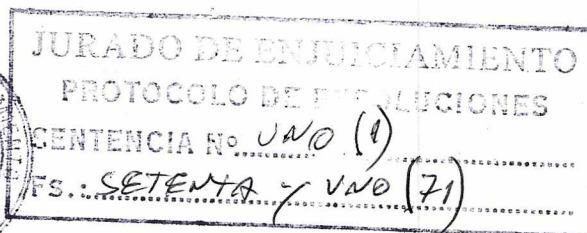 JURADO DE ENJUICIAMIENTO
PROTOCOLO DE RESOLUCIONES
SENTENCIA Nº UNO (1)
FS.: SETENTA y UNO (71)